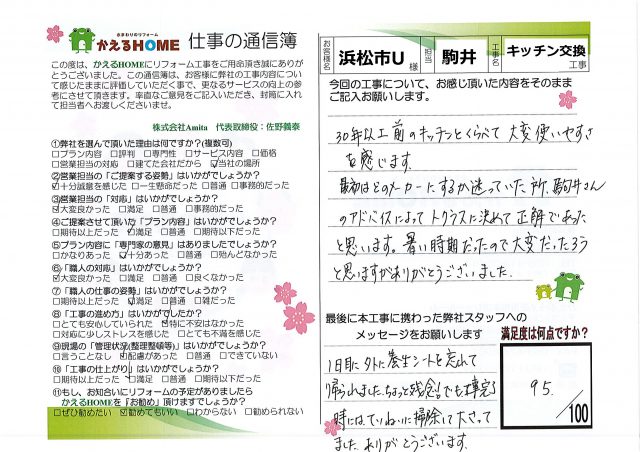 さまわりのリフォーム
かえるHOME
仕事の通信簿
この度は、かえるHOMEにリフォーム工事をご用命頂き誠にありが
とうございました。この通信簿は、お客様に弊社の工事内容につい
て感じたままに評価していただく事で、更なるサービスの向上の参
考にさせて頂きます。率直なご意見をご記入いただき、封筒に入れ
て担当者へお渡しくださいませ。
株式会社Amita 代表取締役:佐野義泰
①弊社を選んで頂いた理由は何ですか?(複数可)
□プラン内容 □評判 □専門性 □サービス内容 □価格
□営業担当の対応 □建てた会社だから ☑当社の場所
②営業担当の「ご提案する姿勢」はいかがでしょうか?
☑十分誠意を感じた □一生懸命だった □普通 □事務的だった
③営業担当の「対応」はいかがでしょうか?
☑大変良かった □満足 □普通 □事務的だった
④ご提案させて頂いた「プラン内容」はいかがでしょうか?
□期待以上だった ☑満足 □普通 □期待以下だった
⑤プラン内容に「専門家の意見」はありましたでしょうか?
□かなりあった ☑十分あった □普通 □殆んどなかった
⑥「職人の対応」はいかがでしょうか?
☑大変良かった □満足 □普通 □良くなかった
⑦「職人の仕事の姿勢」はいかがでしょうか?
□期待以上だった ☑満足 □普通 □雑だった
⑧「工事の進め方」はいかがでしたか?
□とても安心していられた ☑特に不安はなかった
□対応に少しストレスを感じた □とても不満を感じた
⑨現場の「管理状況(整理整頓等)」はいかがでしょうか?
□言うことなし ☑配慮があった □普通 □できていない
⑩「工事の仕上がり」はいかがでしょうか?
□期待以上だった ☑満足 □普通 □期待以下だった
⑪もし、お知合いにリフォームの予定がありましたら
かえるHOMEを『お勧め』頂けますでしょうか?
□ぜひ勧めたい ☑勧めてもいい □わからない □勧められない
お客様名 浜松市U 様 担当 駒井 工事名 キッチン交換 工事
今回の工事について、お感じ頂いた内容をそのまま
ご記入お願いします。
30年以上前のキッチンとくらべて大変使いやすさ
を感じます。
最初はどのメーカーにするか迷っていた所、駒井さん
のアドバイスによってトクラスに決めて正解であった
と思います。暑い時期だったので大変だったろう
と思いますがありがとうございました。
最後に本工事に携わった弊社スタッフへの
メッセージをお願いします
満足度は何点ですか?
95 /100
1日目に外に養生シートを忘れて
帰られました。ちょっと残念!でも工事完了
時にはていねいに掃除して下さって
ました。ありがとうございます。